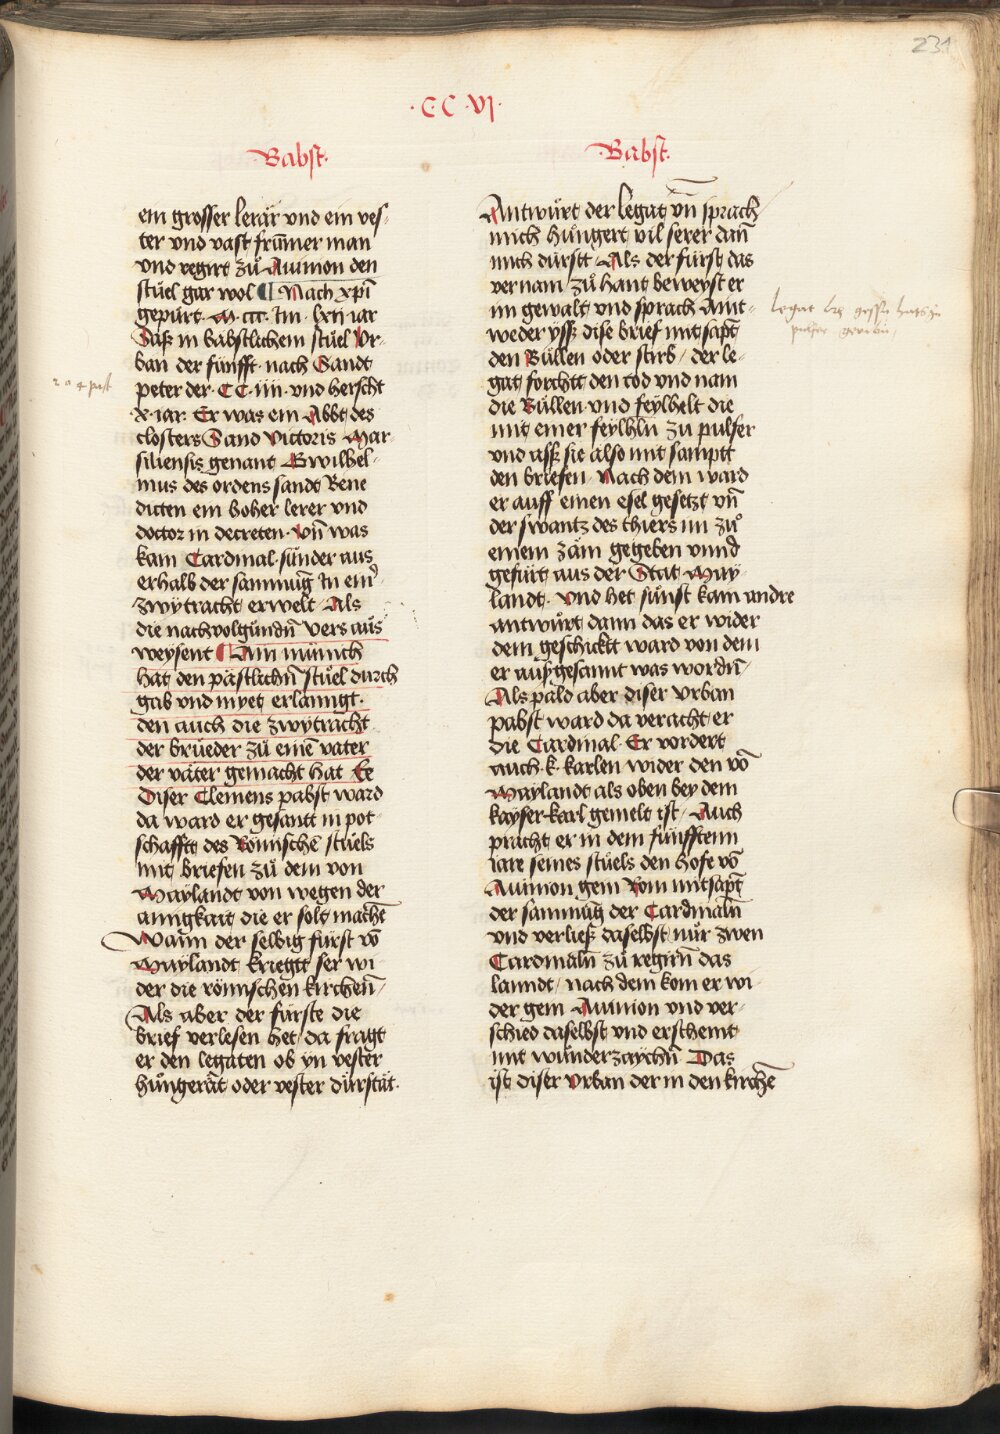 231
·C·C·VI·
·Babst·
ein grosser lerär vnd ein ves-
ter vnd vast frūmer man
vnd regirt zů Auinion den
stůel gar wol ¶ Nach xp̄i
gepůrt· M·ccc· Im· lxij iar
Saß in babstlichem stůel Vr-
ban der fünfft· nach Sandt
peter der· CC·iiii·vnd herscht
·x·iar· Er was ein Abbt des
closters Sand Victoris Mar-
siliensis genant Gwilhel-
mus des ordens sandt Bene
dicten ein hoher lerer vnd
doctor in decreten· Vn̄ was
kain Cardinal· sůnder aus
erhalb der sammuḡ In ein̄
zwytracht erwelt· Als
die nachvolgůndn̄ vers aůs
weysent ¶ Ain münich
hat den pästlichn̄ stůel durch
gab vnd myet erlanngt·
den auch die zwytracht
der brüeder zů einē vater
der väter gemacht hat Ee
Diser Clemens pabst ward
da ward er gesantt in pot-
schafftt des Römischē stůels
mit briefen zů dem von
Maylandt von wegen der
ainigkait die er solt machē
Wann der selbig fürst vō
Maylandt kriegtt ser wi-
der die römischen kirchenn̄
Als aber der fürste die
brief verlesen het da fragt
er den legaten ob yn vester
hůngerät oder vester důrstät·
204 past
·Babst·
Antwůrt der legat vn̄ sprach
mich hůngert vil serer dan̄
mich důrstt· Als der fürst das
vernam zů hant beweyst er
im gewalt vnd sprach Ant-
weder yss dise brief mitsapt̄
den Büllen oder stirb/ der le-
gat forchtt den tod vnd nam
die Büllen vnd feylhelt die
mit einer feylhln̄ zu pulfer
vnd ass sie also mit samptt
den briefen· Nach dem ward
er auff einen esel gesetzt vn̄
der swantz des thiers im zů
einem zäm gegeben vnnd
gefürt aus der Stat May-
landt· Vnd het sůnst kain andre
antwůrt dann das er wider
dem geschicktt ward von dem
er aůsgesannt was wordn̄
Als pald aber diser Vrban
pabst ward da veracht er
die Cardinal· Er vordert
auch·k·karlen wider den vō
Maylandt als oben bey dem
kayser karl gemelt ist· Auch
pracht er in dem fünfftenn
iare seines stůels den hofe vō
Auinion gem Rom mitsapt̄
der sammuḡ der Cardinaln̄
vnd verließ daselbst nůr zwen
Cardinaln̄ zů regirn̄ das
lanndt/ nach dem kom er wi-
der gem Auinion vnd ver-
schied daselbst vnd erscheint
mit wůnderzaychn̄ Das
ist diser Vrban der in den kirchē
legat
pulfer